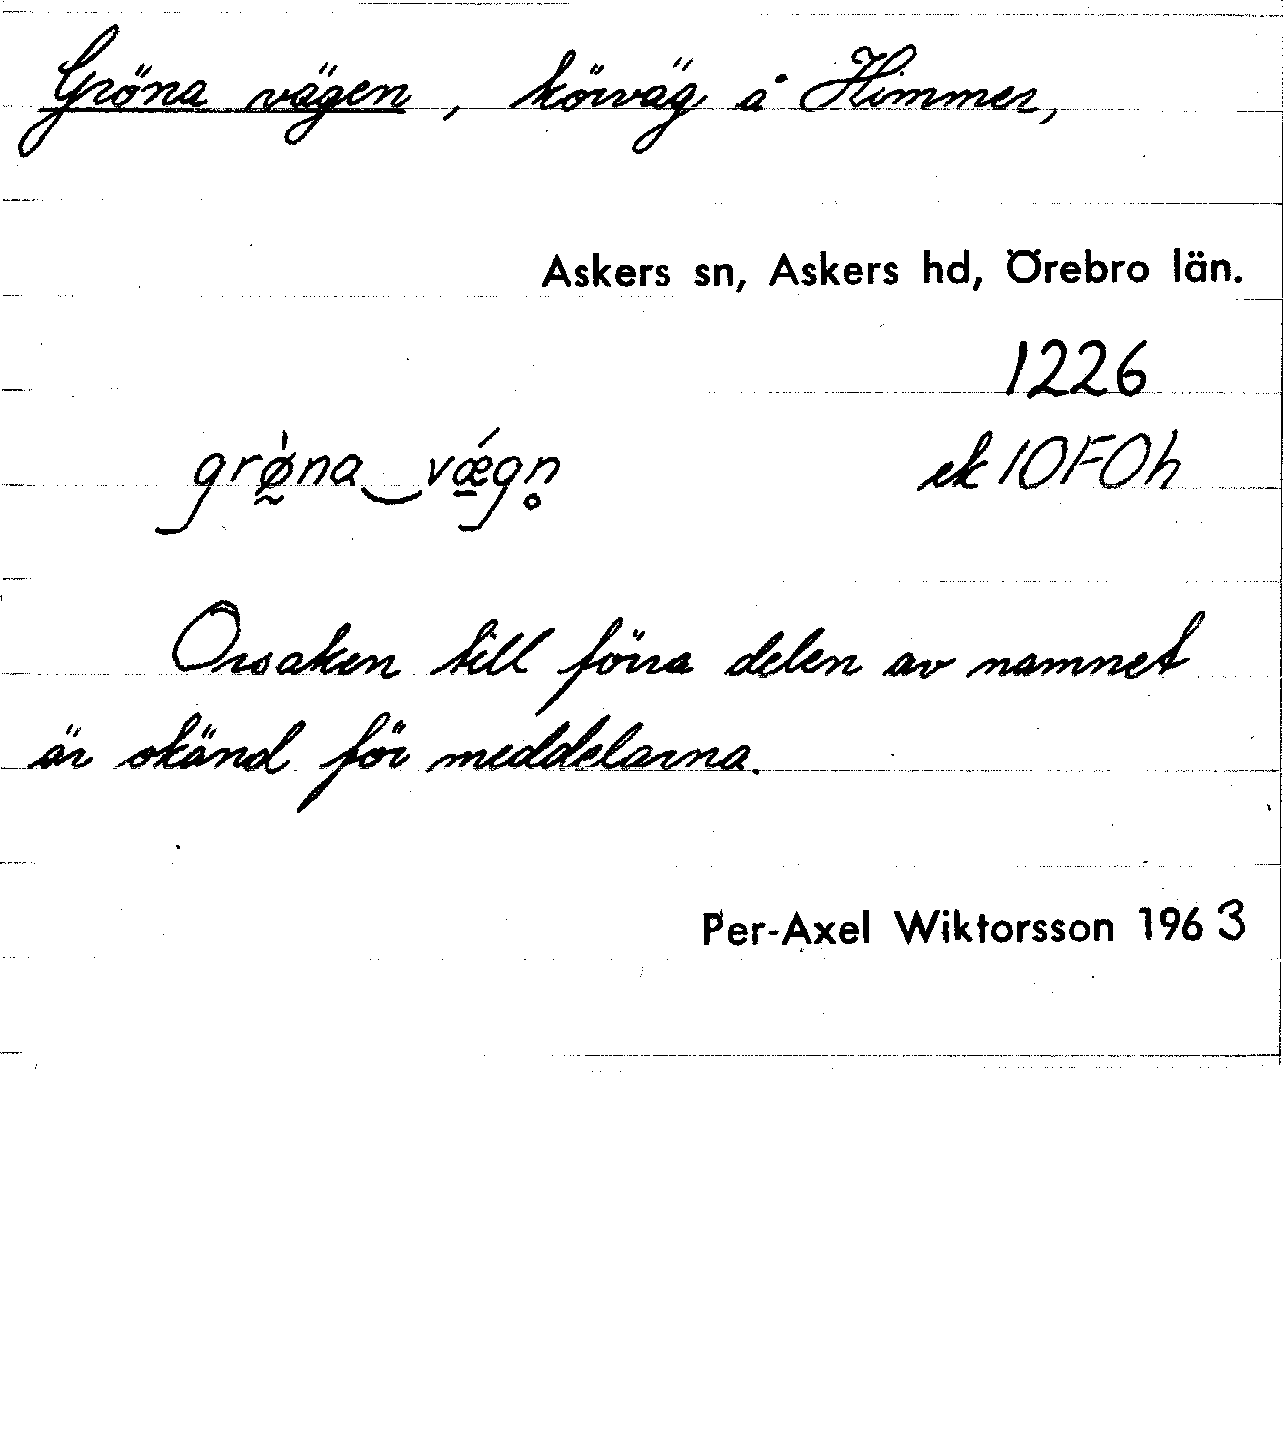 Gröna vägen, körväg å Himmer,
Askers sn, Askers hd, Örebro län.
1226
grø̀na‿vǽgn̥ ek 10F0h
Orsaken till förra delen av namnet
är okänd för meddelarna.
Per-Axel Wiktorsson 1963